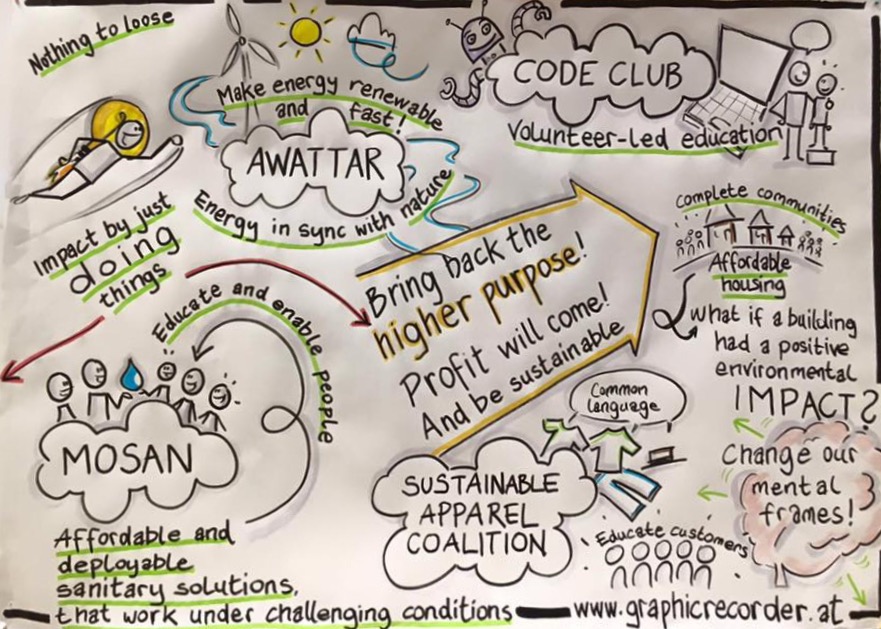 Nothing to loose
Make energy renewable
and fast!
AWATTAR
Energy in sync with nature
CODE CLUB
Volunteer-led education
Impact by just
doing
things
Bring back the
higher purpose!
Profit will come!
And be sustainable
Complete communities
Affordable
housing
What if a building
had a positive
environmental
IMPACT?
Educate and enable people
MOSAN
Affordable and
deployable
sanitary solutions,
that work under challenging conditions
Common
language
SUSTAINABLE
APPAREL
COALITION
Educate customers
Change our
mental
frames!
www.graphicrecorder.at